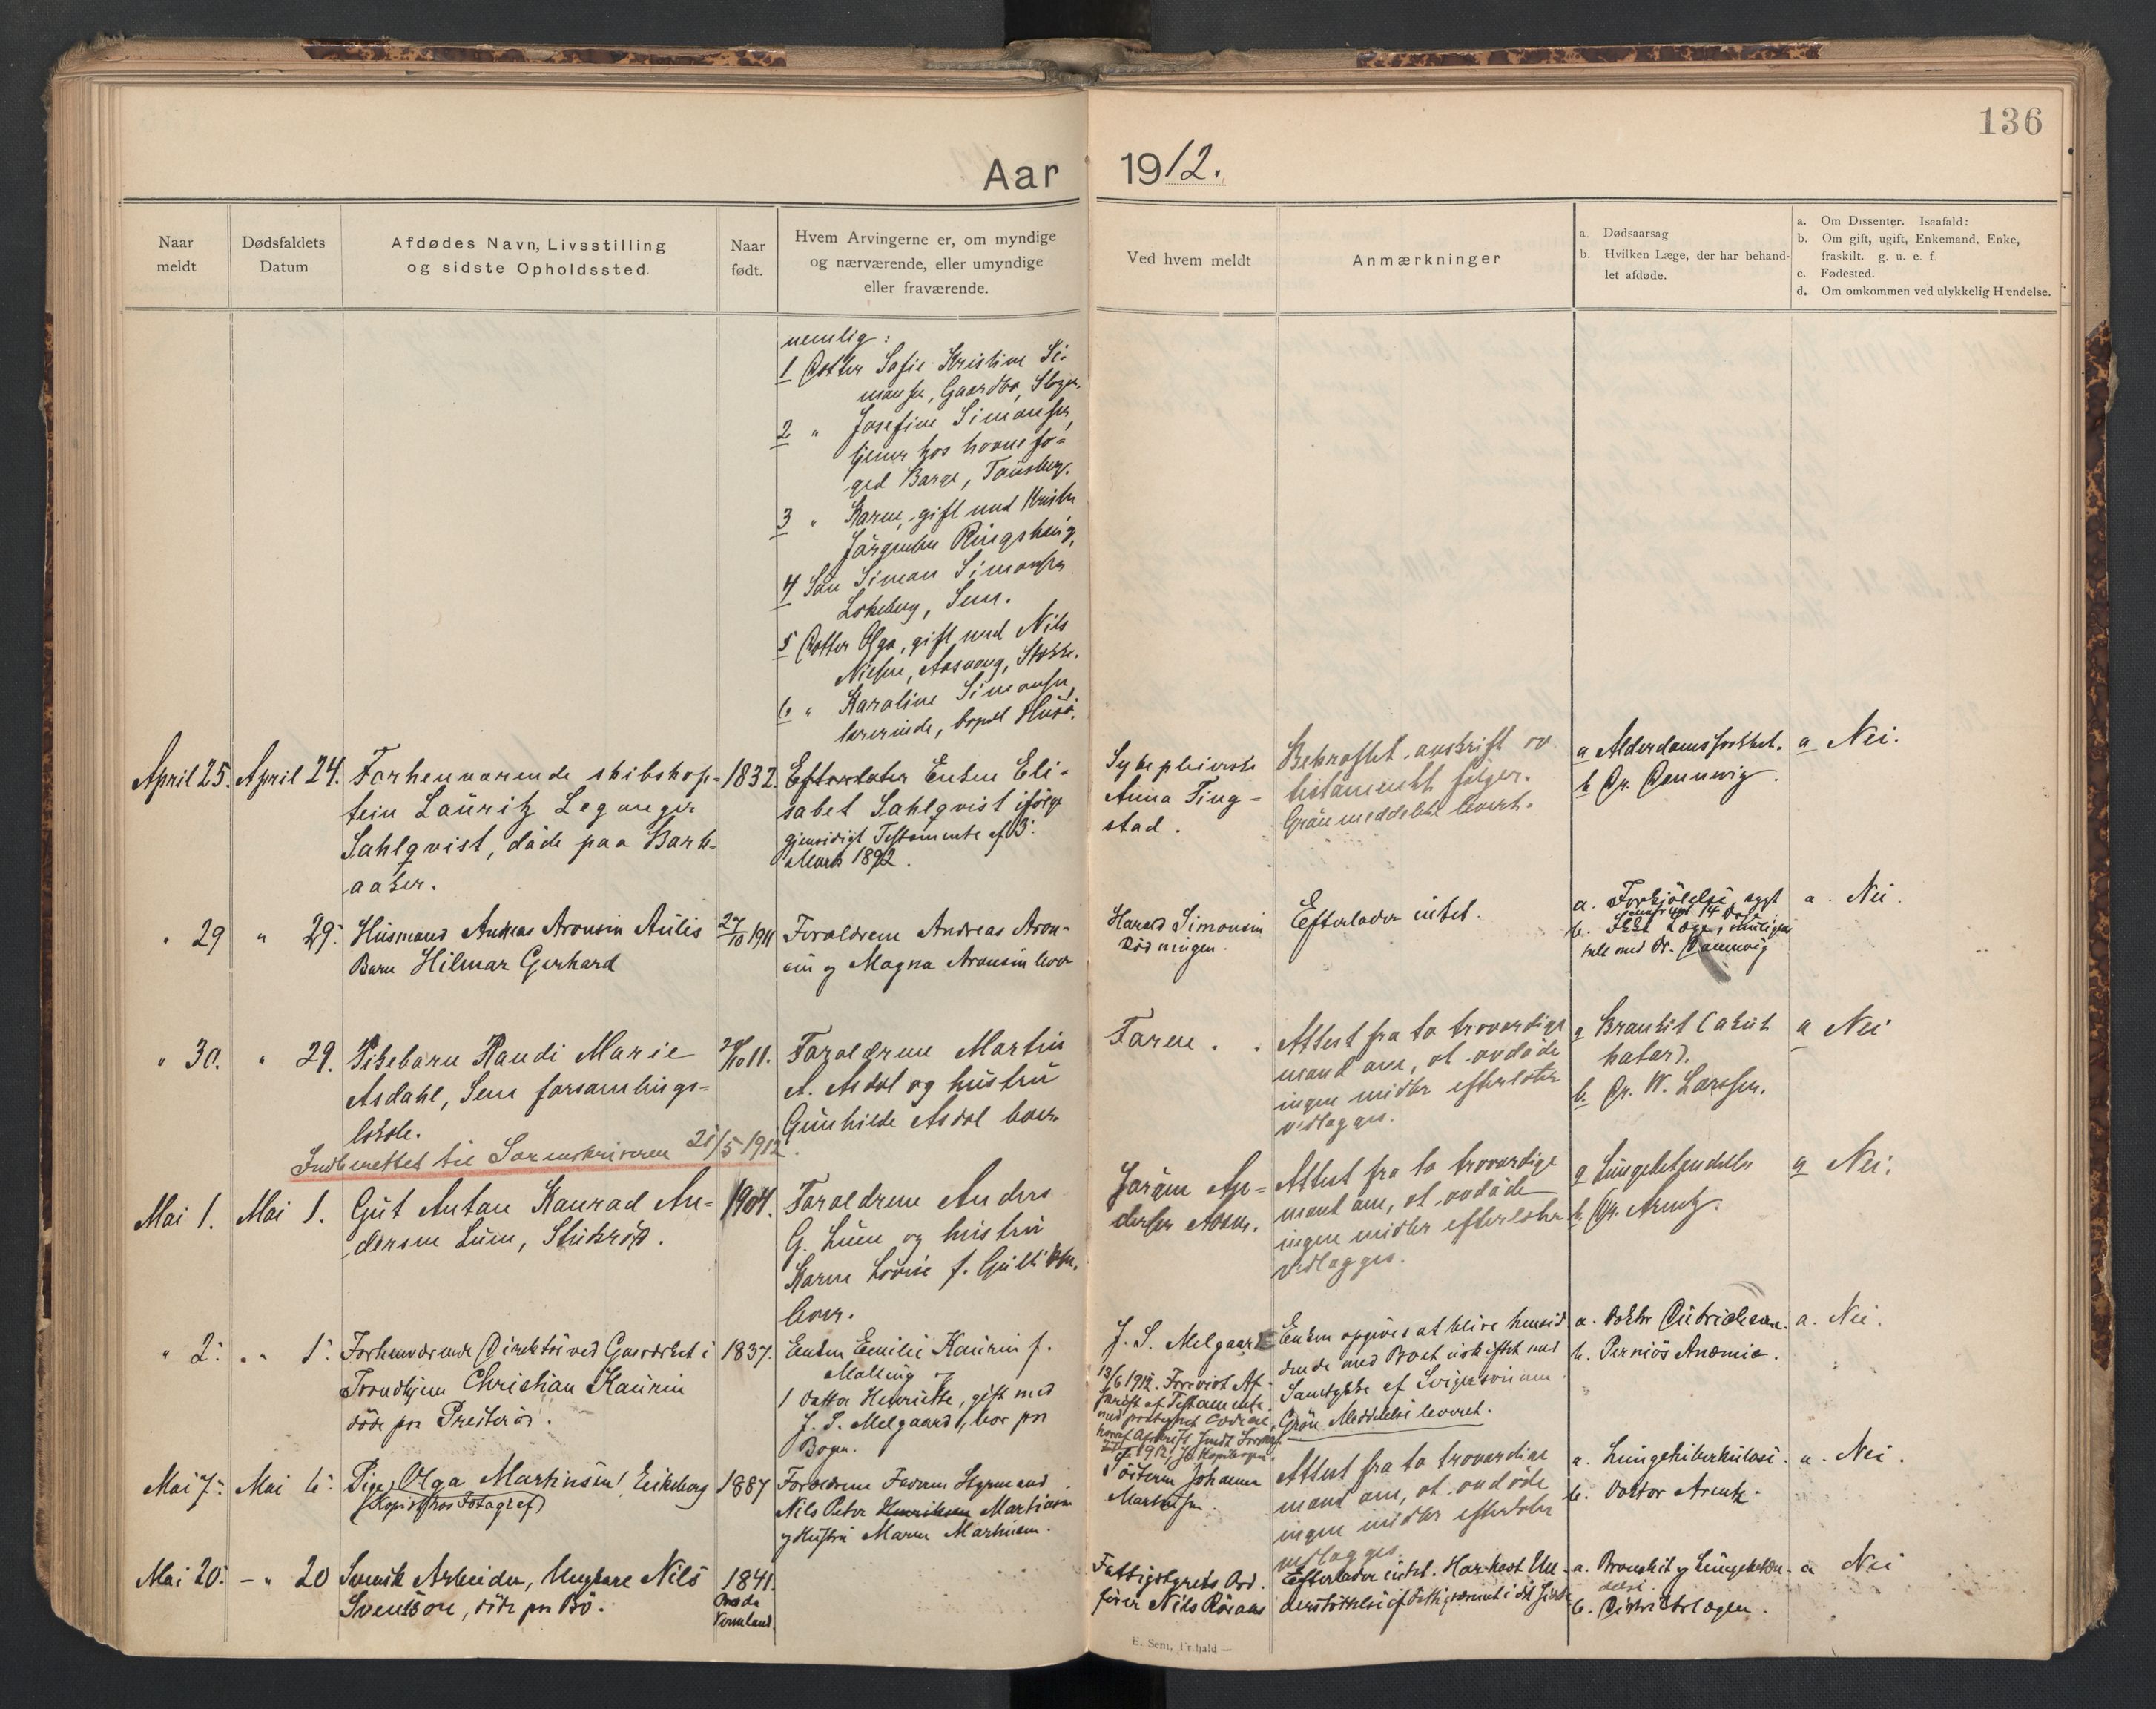 136
Aar 1912.
Naar meldt
Dødsfaldets Datum
Afdødes Navn, Livsstilling og sidste Opholdssted.
Naar født.
Hvem Arvingerne er, om myndige og nærværende, eller umyndige eller fraværende.
Ved hvem meldt
Anmærkninger
a. Dødsaarsag
b. Hvilken Læge, der har behandlet afdøde.
a. Om Dissenter. Isaafald:
b. Om gift, ugift, Enkemand, Enke, fraskilt. g. u. e. f.
c. Fødested.
d. Om omkommen ved ulykkelig Hændelse.
nemlig:
1 Datter Sofie Kristine Si-
monsen, Gaardbo,
2 " Josefine Simonsen,
tjener hos havnefo-
ged Barge, Tønsberg.
3 " Karen, gift med
Jørgensen Ringshaug,
4 Søn Simon Simonsen
Sem.
5 Datter Olga, gift med Nils
Nielsen, Stokke.
6 " Karoline Simonsen,
lærerinde, Husø.
April 25. April 24. Forhenværende skibskap-
tein Lauritz Leganger
Sahlqvist, døde paa Bark-
aaker.
1832.
Efterlater Enken Eli-
sabet Sahlqvist ifølge
gjensidigt Testamente af 3.
Marts 1892.
Sykepleierske
Anna Ting-
stad.
Bekræftet avskrift av
testamentet følger.
Grøn meddelelse levert.
a Alderdomssvakhet.
b Dr.
a Nei.
" 29 " 29. Husmand Andreas Aronsen Aulis
Barn Hilmar Gerhard
27/10 1911
Forældrene Andreas Aron-
sen og Magna Aronsen lever
Harald Simonsen
Rødningen.
Efterlader intet.
a. Forkjølelse, sygt
14 Dage
b. Læge,
med Dr.
a. Nei.
" 30. " 29. Pikebarn Randi Marie
Asdahl, Sem forsamlings-
lokale.
11.
Forældrene Martin
A. Asdal og hustru
Gunhilde Asdal lever.
Faren.
Attest fra to troværdige
mænd om, at avdøde
ingen midler efterlater
vedlægges.
a Bronkit (akut
katar).
b. Dr. W. Larssen.
a Nei
Indberettet til Sorenskriveren 21/5 1912.
Mai 1. Mai 1. Gut Anton Konrad An-
dersen Lun,
1904.
Forældrene Anders
G. Lun og hustru
Karen Lovise f.
lever.
Jørgen An-
dersen
Attest fra to troværdige
mænd om, at avdøde
ingen midler efterlater
vedlægges.
a Lungebetændelse
b. Dr. Arentz.
a Nei.
" 2. " 1. Forhenværende Direktør ved Gasværket i
Trondhjem Christian Kaurin
døde paa Presterød.
1837.
Enken Emilie Kaurin f.
Malling og
1 Datter Henriette, gift med
J. S. Melgaard, bor paa
Bogen.
J. S. Melgaard
13/6 1912. Forevist Af-
skrift af Testamente
Enken opgives at blive hensid
dende med Boet uskiftet med
Samtykke af Svigersønnen
Grøn Meddelelse leveret.
a. Doktor
b. Perniøs Anæmie.
a. Nei.
Mai 7. Mai 6. Pige Olga Martinsen, Eikeberg
(Kopist hos Fotograf)
1887
Forældrene Formand
Nils Peter Henriksen Martinsen
og Hustru Maren Martinsen.
Søsteren Johanna
Martinsen.
Attest fra to troværdige
mænd om, at avdøde
ingen midler efterlater
vedlægges.
a. Lungetuberkulose.
b. Doktor Arentz.
a. Nei.
Mai 20. - " 20 Svensk Arbeider, Ungkare Nils
Svensson, døde paa Bø.
1841.
Vermland.
Fattigstyrets Ord-
fører Nils Røraas
Efterlader intet. Har havt Un-
derstøttelse af Fattigvæsenet i
a. Bronkit og Lungebetæn-
delse
b. Distriktslægen.
a Nei
E. Sem, Fr.hald —